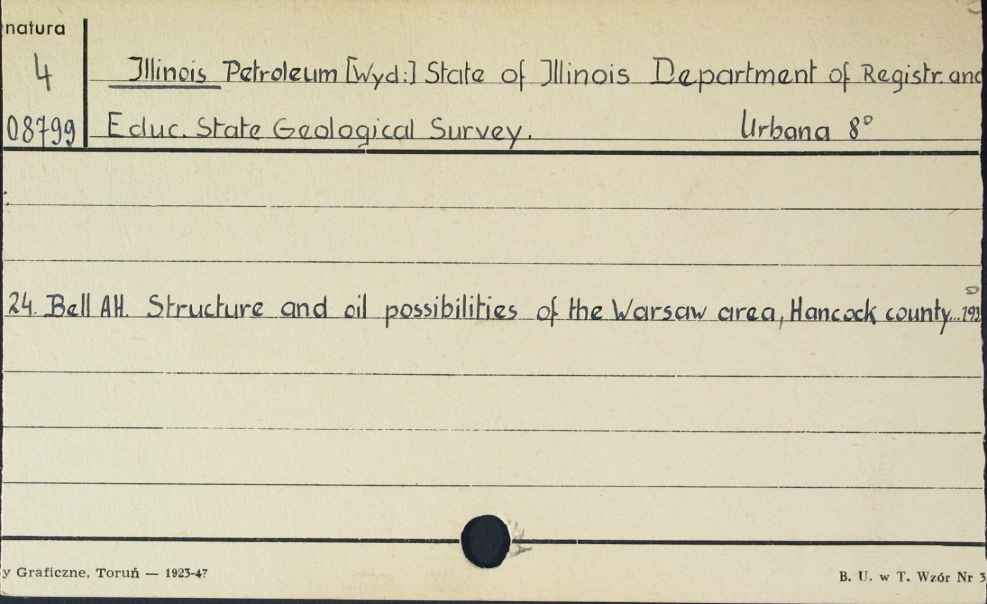 natura
4 Illinois Petroleum [Wyd:] State of Illinois Department of Registr. and
08799 Educ. State Geological Survey. Urbana 8°
24. Bell AH. Structure and oil possibilities of the Warsaw area, Hancock county...193
y Graficzne, Toruń — 1923-47
B. U. w T. Wzór Nr 3